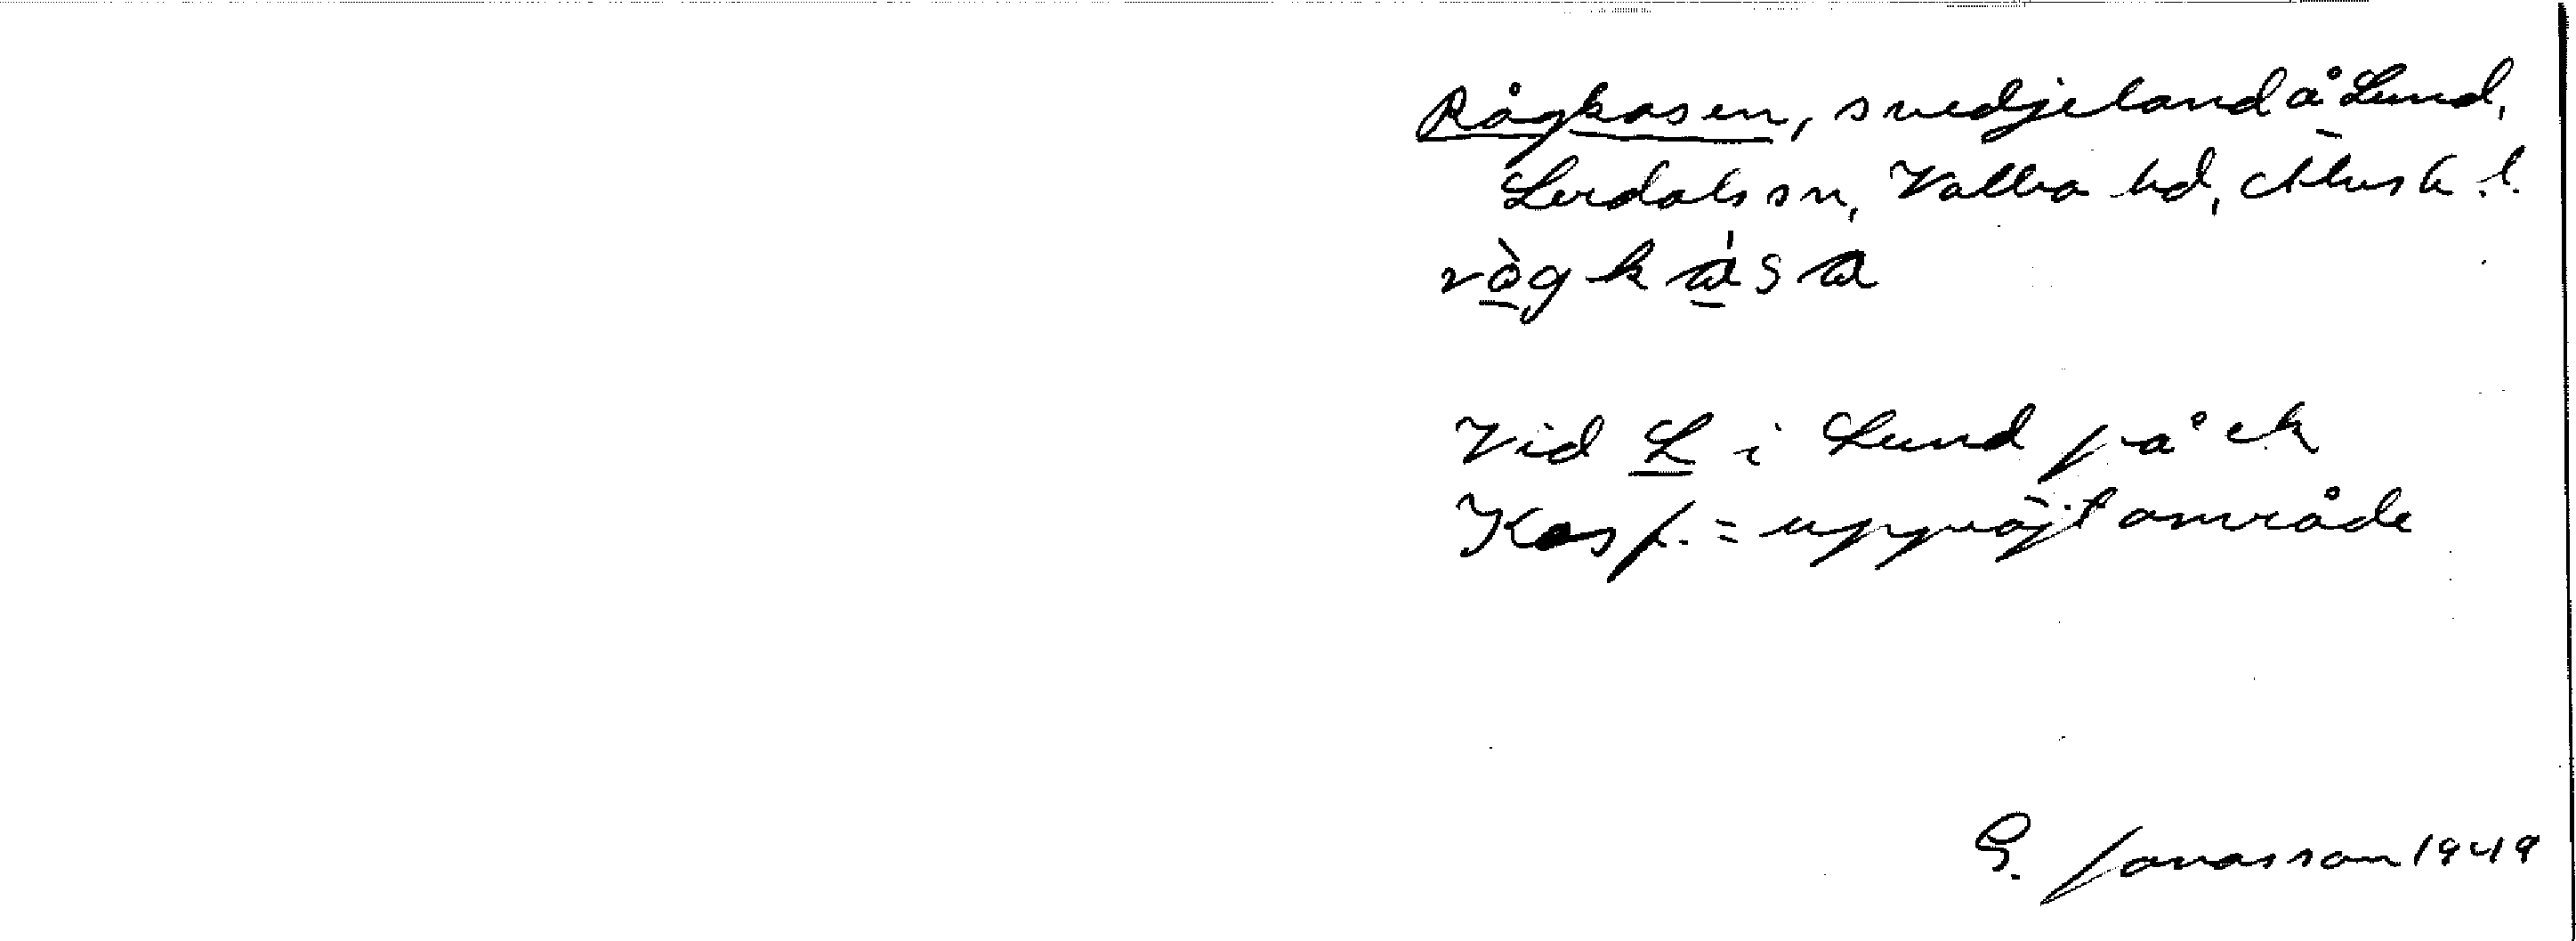 Rågkasen, svedjeland å Lund,
Lerdals sn, Valbo hd, Älvsb. l.
rògkàsa
Vid L i Lund på ek
Kas f. = uppröjt område
G. Jonasson 1949